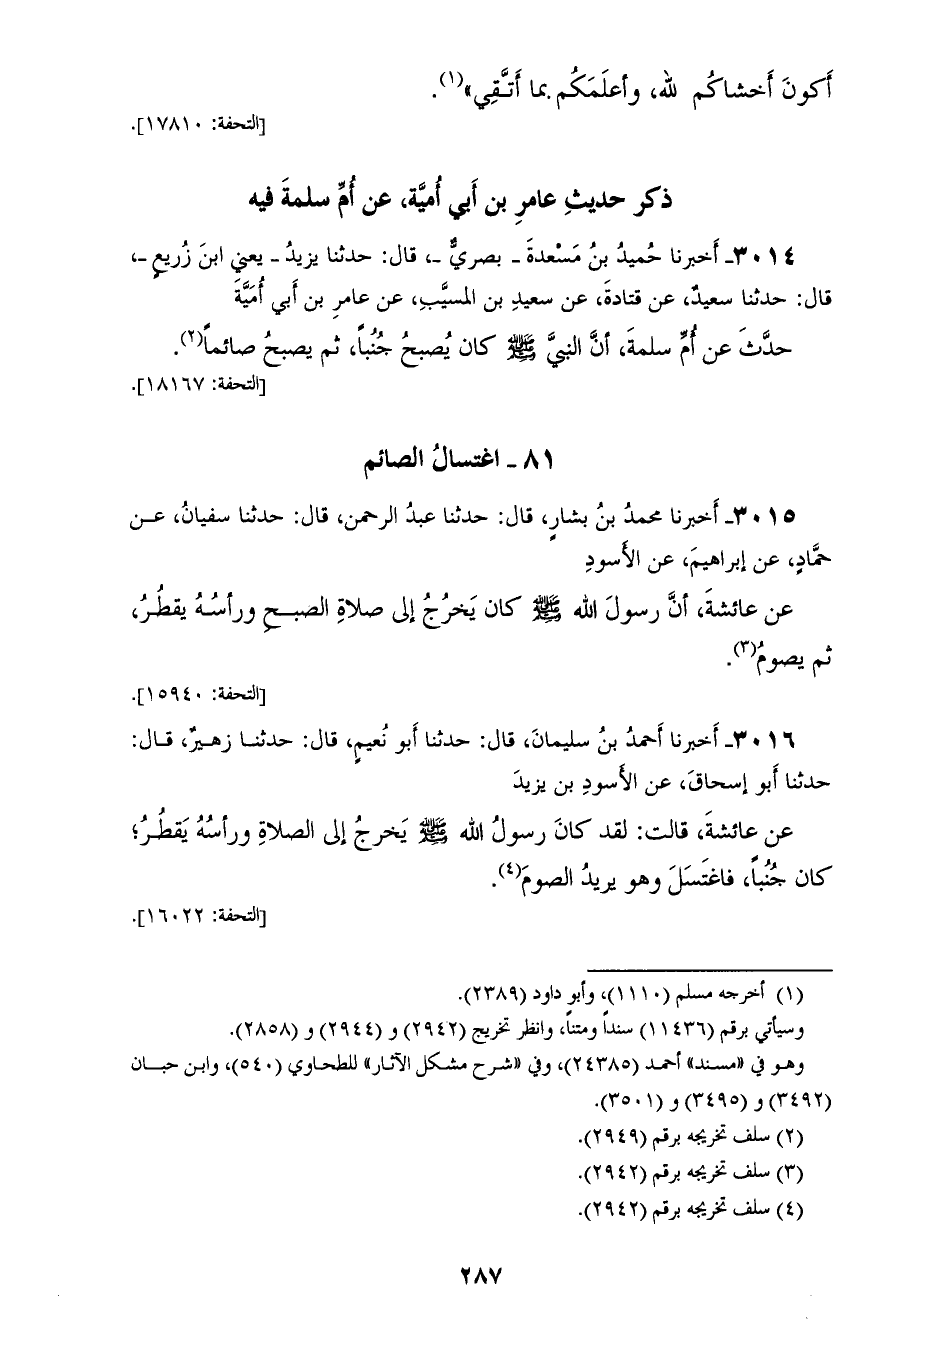 أَكونَ أَخشاكُم لله، وأعلَمَكُم بما أَتَّقِي»(١).
[التحفة: ١٧٨١٠].
ذكر حديثِ عامرِ بن أَبي أُميَّة، عن أُمِّ سلمةَ فيه
٣٠١٤- أَخبرنا حُميدُ بنُ مَسْعدةَ - بصريٌّ -، قال: حدثنا يزيدُ - يعني ابنَ زُريعٍ -،
قال: حدثنا سعيدٌ، عن قتادةَ، عن سعيدِ بن المسيَّبِ، عن عامرِ بن أَبي أُمَيَّةَ
حدَّثَ عن أُمِّ سلمةَ، أنَّ النبيَّ ﷺ كان يُصبحُ جُنُباً، ثم يصبحُ صائماً(٢).
[التحفة: ١٨١٦٧].
٨١ - اغتسالُ الصائم
٣٠١٥- أَخبرنا محمدُ بنُ بشارٍ، قال: حدثنا عبدُ الرحمن، قال: حدثنا سفيانُ، عن
حمَّادٍ، عن إبراهيمَ، عن الأَسودِ
عن عائشةَ، أنَّ رسولَ الله ﷺ كان يَخرُجُ إلى صلاةِ الصبحِ ورأسُهُ يقطُرُ،
ثم يصومُ(٣).
[التحفة: ١٥٩٤٠].
٣٠١٦- أَخبرنا أَحمدُ بنُ سليمانَ، قال: حدثنا أَبو نُعيمٍ، قال: حدثنا زهيرٌ، قال:
حدثنا أَبو إسحاقَ، عن الأَسودِ بن يزيدَ
عن عائشةَ، قالت: لقد كانَ رسولُ الله ﷺ يَخرجُ إلى الصلاةِ ورأسُهُ يَقطُرُ؛
كان جُنُباً، فاغتَسَلَ وهو يريدُ الصومَ(٤).
[التحفة: ١٦٠٢٢].
(١) أخرجه مسلم (١١١٠)، وأبو داود (٢٣٨٩).
وسيأتي برقم (١١٤٣٦) سنداً ومتناً، وانظر تخريج (٢٩٤٢) و (٢٩٤٤) و (٢٨٥٨).
وهو في «مسند» أحمد (٢٤٣٨٥)، وفي «شرح مشكل الآثار» للطحاوي (٥٤٠)، وابن حبان
(٣٤٩٢) و (٣٤٩٥) و (٣٥٠١).
(٢) سلف تخريجه برقم (٢٩٤٩).
(٣) سلف تخريجه برقم (٢٩٤٢).
(٤) سلف تخريجه برقم (٢٩٤٢).
٢٨٧